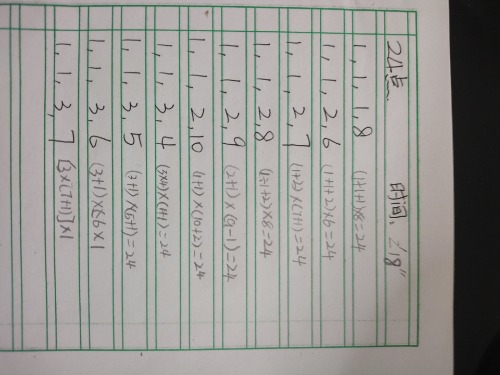 24点 时间: 2'18"
1, 1, 1, 8 (1+1+1)×8=24
1, 1, 2, 6 (1+1+2)×6=24
1, 1, 2, 7 (1+2)×(7+1)=24
1, 1, 2, 8 (1÷1+2)×8=24
1, 1, 2, 9 (2+1)×(9-1)=24
1, 1, 2, 10 (1+1)×(10+2)=24
1, 1, 3, 4 (3×4)×(1+1)=24
1, 1, 3, 5 (3+1)×(5+1)=24
1, 1, 3, 6 (3+1)×6×1
1, 1, 3, 7 [3×(7+1)]×1